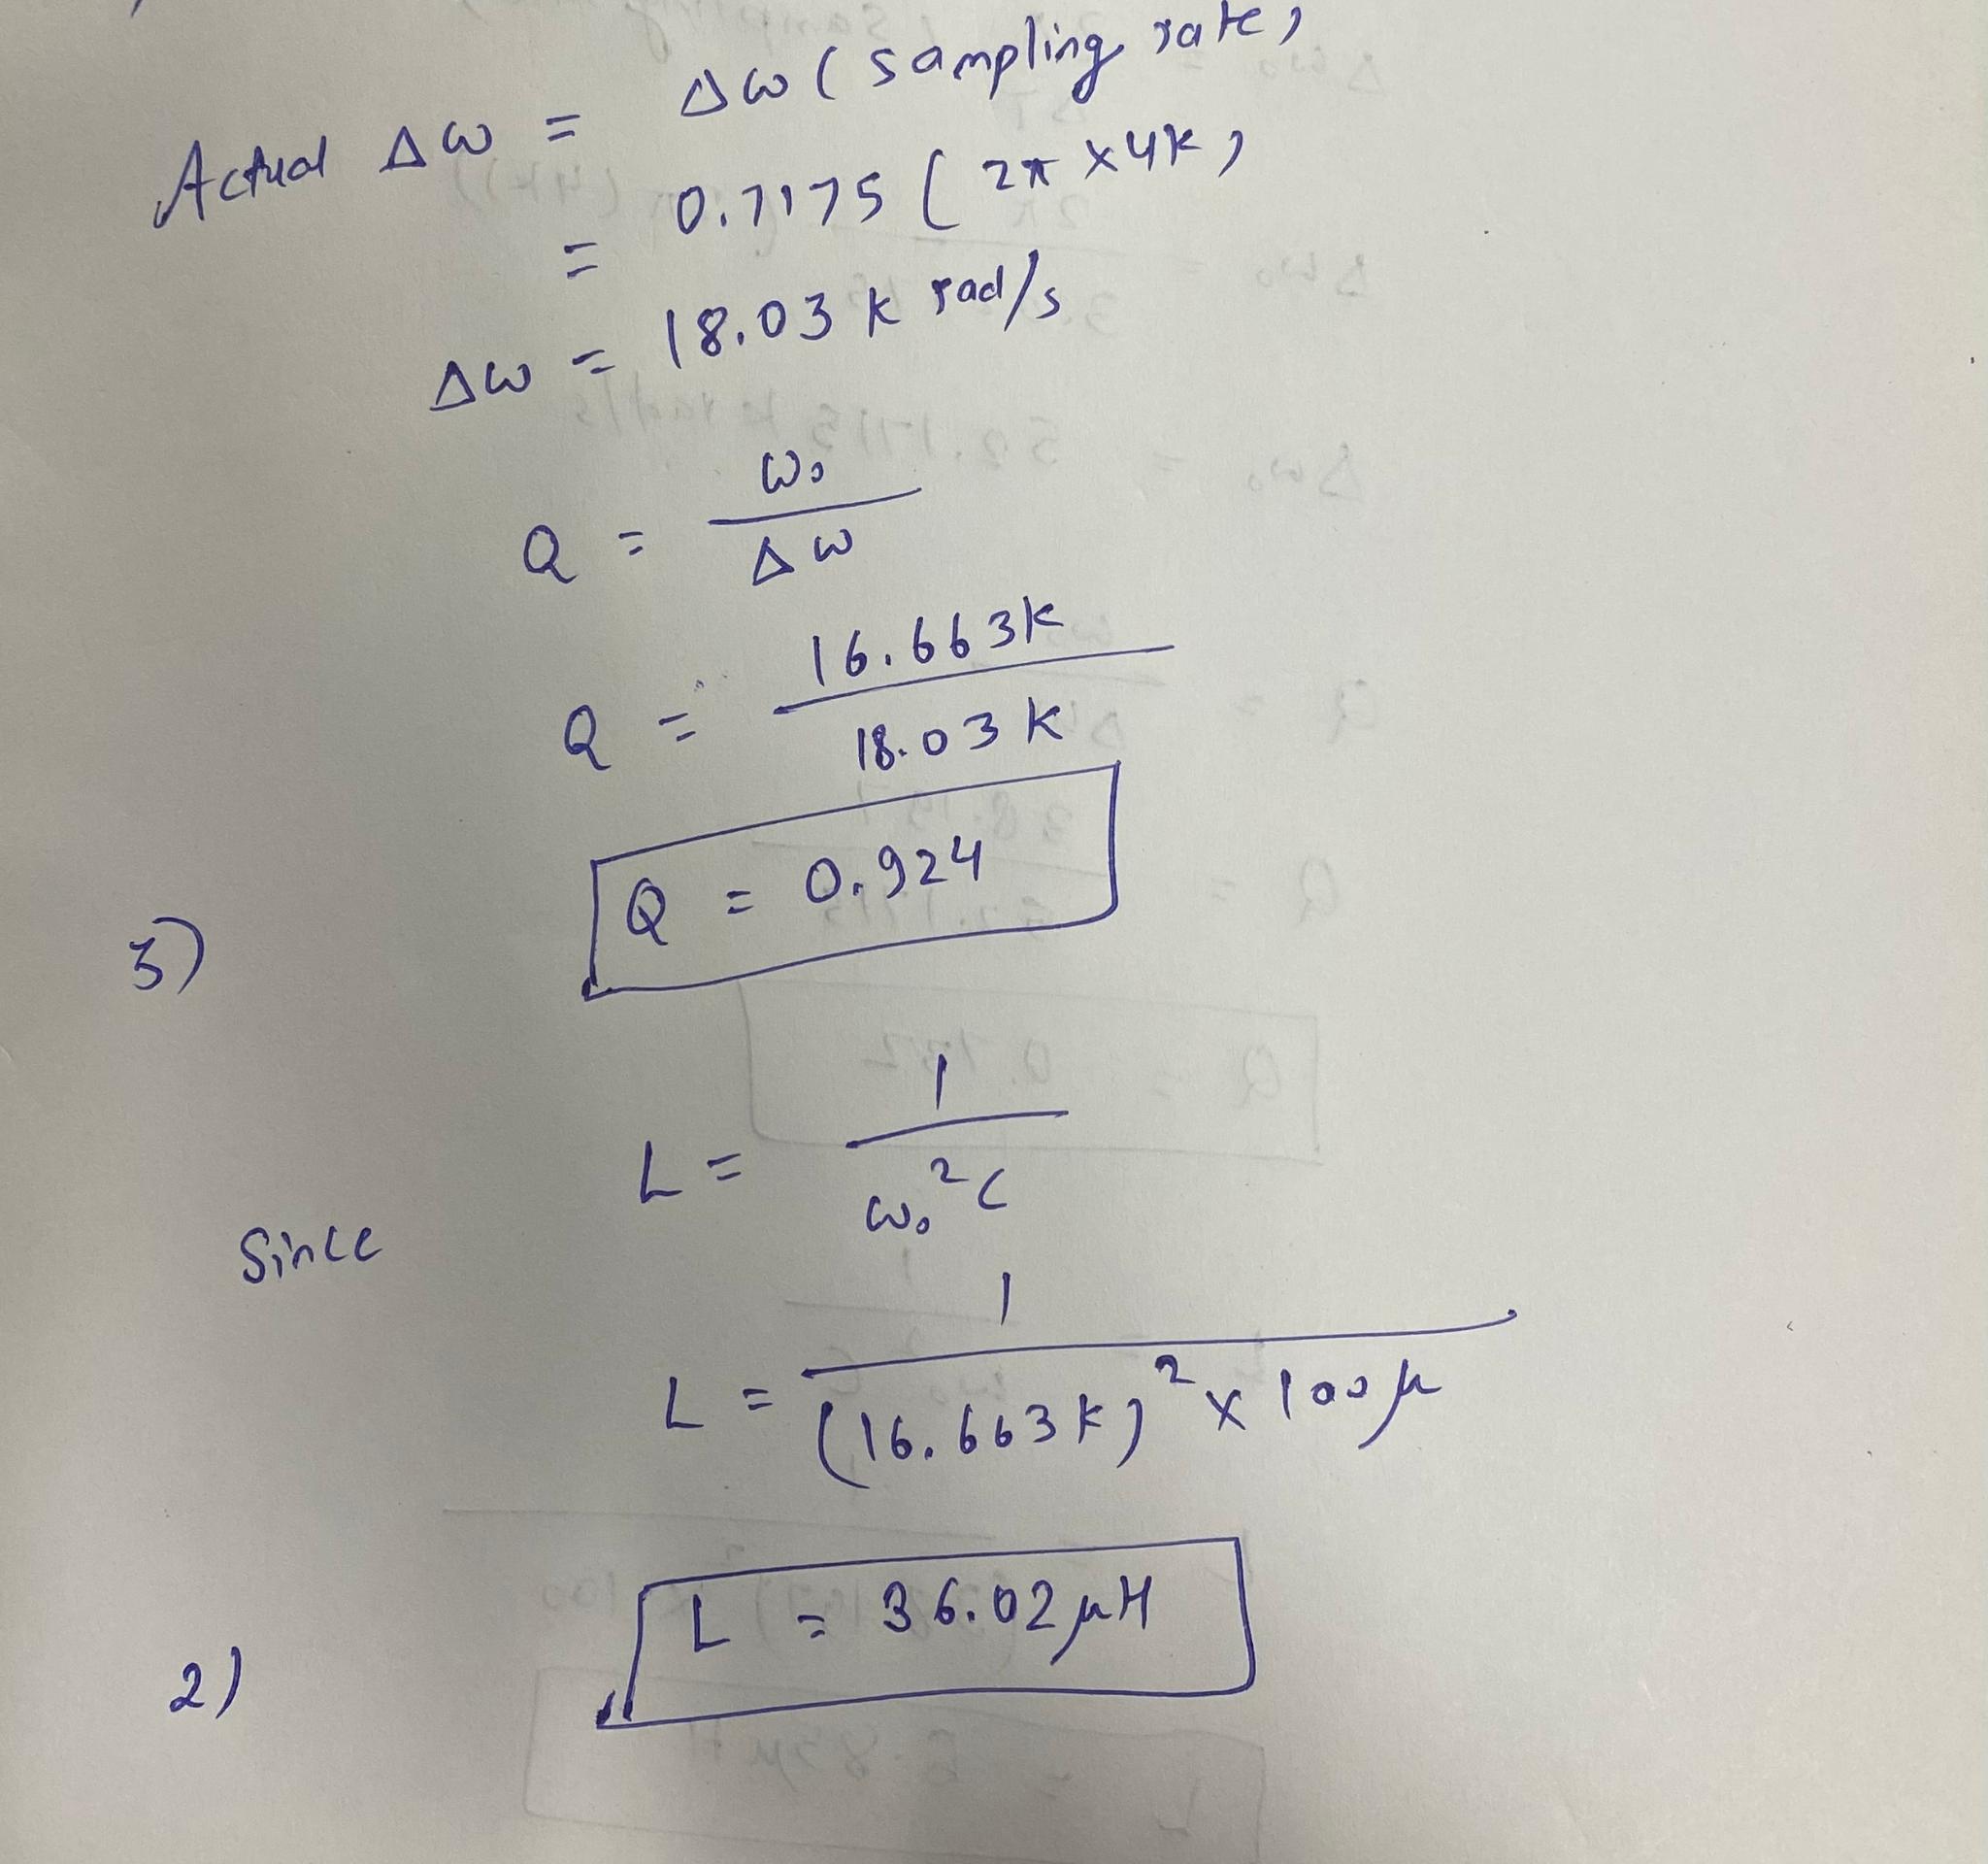 Actual Δω = Δω (sampling rate)
= 0.7175 (2π × 4k)
Δω = 18.03 k rad/s
Q = ω₀ / Δω
Q = 16.663k / 18.03 k
Q = 0.924
3)
Since L = 1 / ω₀²C
L = 1 / (16.663k)² × 100μ
2) L = 36.02 μH